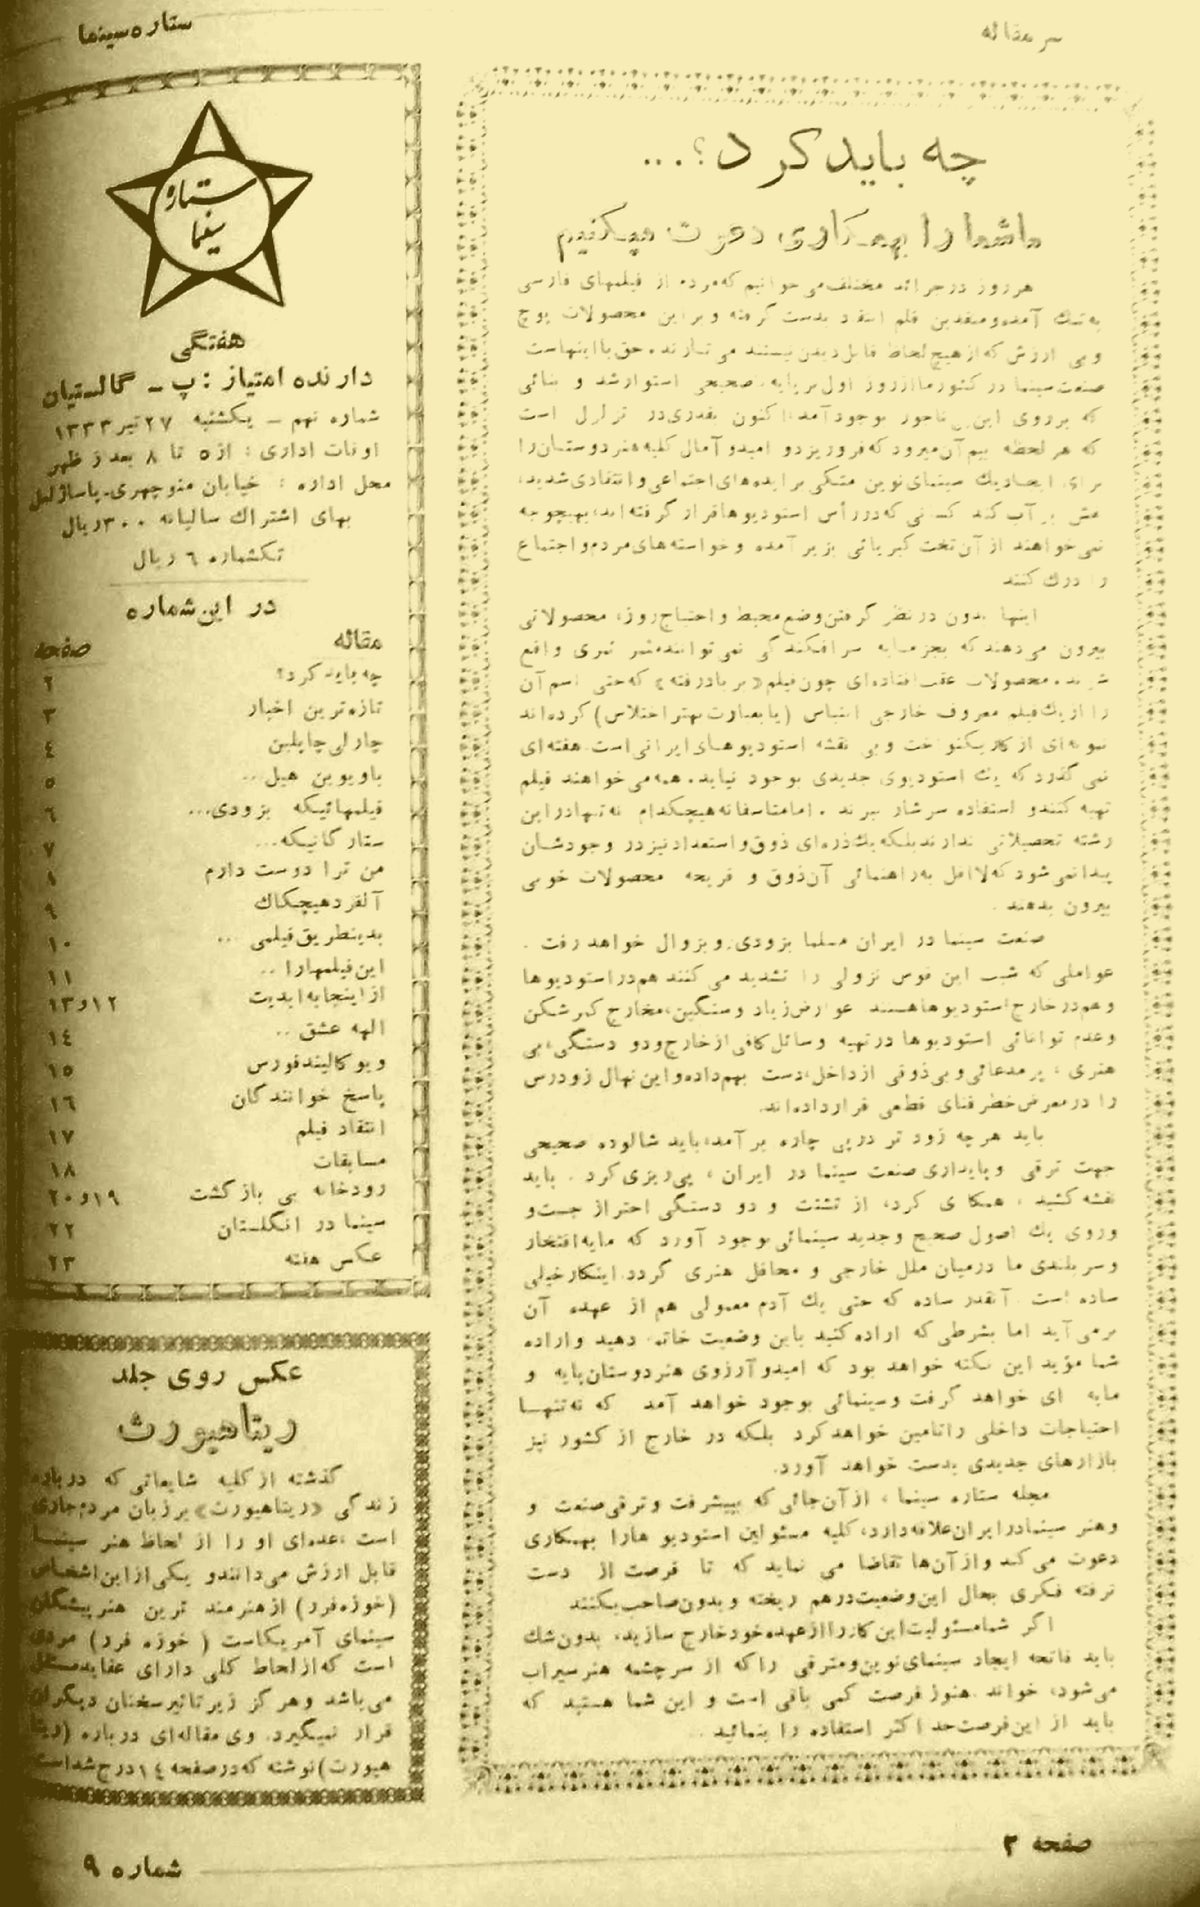 سر مقاله
ستاره سینما
چه باید کرد؟...
ما شما را بهمکاری دعوت میکنیم
هر روز در جرائد مختلف می خوانیم که مردم از فیلمهای فارسی
به تنگ آمده و منقدین قلم انتقاد بدست گرفته و بر این محصولات پوچ
و بی ارزش که از هیچ لحاظ قابل دیدن نیستند می تازند. حق با اینهاست
صنعت سینما در کشور ما از روز اول بر پایه صحیحی استوار نشد و بنائی
که بر روی این ناجور بوجود آمد، اکنون بقدری در تزلزل است
که هر لحظه بیم آن میرود که فرو ریزد و امید و آمال کلیه هنر دوستان را
برای ایجاد یک سینمای نوین متکی بر ایده های اجتماعی و انتقادی شدید،
نقش بر آب کند کسانی که در رأس استودیوها قرار گرفته اند، بهیچوجه
نمی خواهند از آن تخت کبریائی بزیر آمده و خواسته های مردم و اجتماع
را درک کنند
اینها بدون در نظر گرفتن وضع محیط و احتیاج روز، محصولاتی
بیرون می دهند که بجز مایه سرافکندگی نمی توانند مثمر ثمری واقع
شوند. محصولات عقب افتاده ای چون فیلم «بر باد رفته» که حتی اسم آن
را از یک فیلم معروف خارجی اقتباس (یا بعبارت بهتر اختلاس) کرده اند
نمونه ای از کار یکنواخت و بی نقشه استودیوهای ایرانی است. هفته ای
نمی گذرد که یک استودیوی جدیدی بوجود نیاید. همه می خواهند فیلم
تهیه کنند و استفاده سرشار ببرند. اما متاسفانه هیچکدام نه تنها در این
رشته تحصیلاتی ندارند بلکه یک ذره ای ذوق و استعداد نیز در وجودشان
پیدا نمی شود که لااقل به راهنمائی آن ذوق و قریحه محصولات خوبی
بیرون بدهند.
صنعت سینما در ایران مسلما بزودی رو بزوال خواهد رفت.
عواملی که شیب این قوس نزولی را تشدید می کنند هم در استودیوها
و هم در خارج استودیوها هستند عوارض زیاد و سنگین، مخارج کمرشکن
و عدم توانائی استودیوها در تهیه وسائل کافی از خارج و دو دستگی، بی
هنری، پر مدعائی و بی ذوقی از داخل، دست بهم داده و این نهال زودرس
را در معرض خطر فنای قطعی قرار داده اند.
باید هر چه زود تر در پی چاره بر آمد، باید شالوده صحیحی
جهت ترقی و پایداری صنعت سینما در ایران، پی ریزی کرد. باید
نقشه کشید، همکاری کرد، از تشتت و دو دستگی احتراز جست و
و روی یک اصول صحیح و جدید سینمائی بوجود آورد که مایه افتخار
و سر بلندی ما در میان ملل خارجی و محافل هنری گردد. اینکار خیلی
ساده است آنقدر ساده که حتی یک آدم معمولی هم از عهده آن
بر می آید اما بشرطی که اراده کنید باین وضعیت خاتمه دهید و اراده
شما مؤید این نکته خواهد بود که امید و آرزوی هنر دوستان پایه و
مایه ای خواهد گرفت و سینمائی بوجود خواهد آمد که نه تنها
احتیاجات داخلی را تامین خواهد کرد بلکه در خارج از کشور نیز
بازارهای جدیدی بدست خواهد آورد.
مجله ستاره سینما، از آن جائی که بپیشرفت و ترقی صنعت و
و هنر سینما در ایران علاقه دارد، کلیه مسئولین استودیو هارا بهمکاری
دعوت می کند و از آن ها تقاضا می نماید که تا فرصت از دست
نرفته فکری بحال این وضعیت درهم ریخته و بدون صاحب بکنند
اگر شما مسئولیت این کار را از عهده خود خارج سازید، بدون شک
باید فاتحه ایجاد سینمای نوین و مترقی را که از سر چشمه هنر سیراب
می شود، خواند. هنوز فرصت کمی باقی است و این شما هستید که
باید از این فرصت حد اکثر استفاده را بنمائید.
صفحه ۲
ستاره
سینما
هفتگی
دارنده امتیاز : پ - گالستیان
شماره نهم - یکشنبه ۲۷ تیر ۱۳۳۳
اوقات اداری : از ۵ تا ۸ بعد از ظهر
محل اداره : خیابان منوچهری-پاساژ لیل
بهای اشتراک سالیانه ۳۰۰ ریال
تکشماره ٦ ریال
در این شماره
مقاله صفحه
چه باید کرد؟ ۲
تازه ترین اخبار ۳
چارلی چاپلین ٤
باویوین هیل... ٥
فیلمهائیکه بزودی... ٦
ستارگانیکه... ۷
من ترا دوست دارم ۸
آلفرد هیچکاک ۹
بدینطریق فیلمی ... ۱۰
این فیلمهارا .. ۱۱
از اینجا به ابدیت ۱۲و۱۳
الهه عشق .. ۱٤
ویوکالیندفورس ۱٥
پاسخ خوانندگان ۱٦
انتقاد فیلم ۱۷
مسابقات ۱۸
رودخانه بی بازگشت ۱۹و۲۰
سینما در انگلستان ۲۲
عکس هفته ۲۳
عکس روی جلد
ریتاهیورث
گذشته از کلیه شایعاتی که درباره
زندگی «ریتاهیورث» بر زبان مردم جاری
است، عده ای او را از لحاظ هنر سینما
قابل ارزش می دانند و یکی از این اشخاص
(خوزه فرر) از هنرمند ترین هنرپیشگان
سینمای آمریکاست (خوزه فرر) مردی
است که از لحاظ کلی دارای عقاید مستقل
می باشد و هرگز زیر تاثیر سخنان دیگران
قرار نمیگیرد. وی مقاله ای درباره (ریتا
هیورث) نوشته که در صفحه ۱٤ درج شده است
شماره ۹